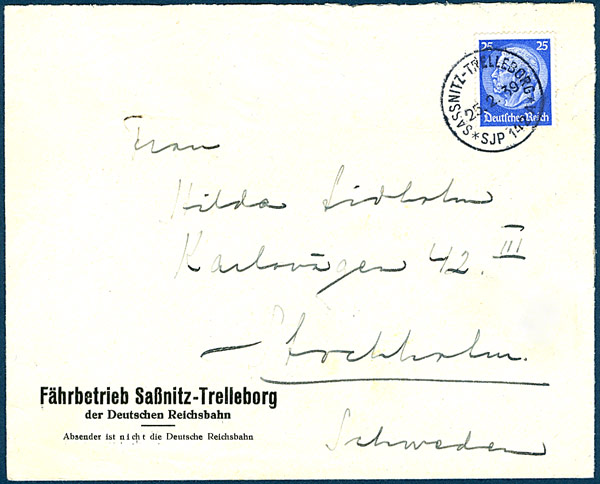 25 25
Deutsches Reich
SASSNITZ-TRELLEBORG
25.2.39
*SJP 14
Frau
Hilda Lidholm
Karlavägen 42. III
Stockholm.
Schweden
Fährbetrieb Saßnitz-Trelleborg
der Deutschen Reichsbahn
Absender ist nicht die Deutsche Reichsbahn